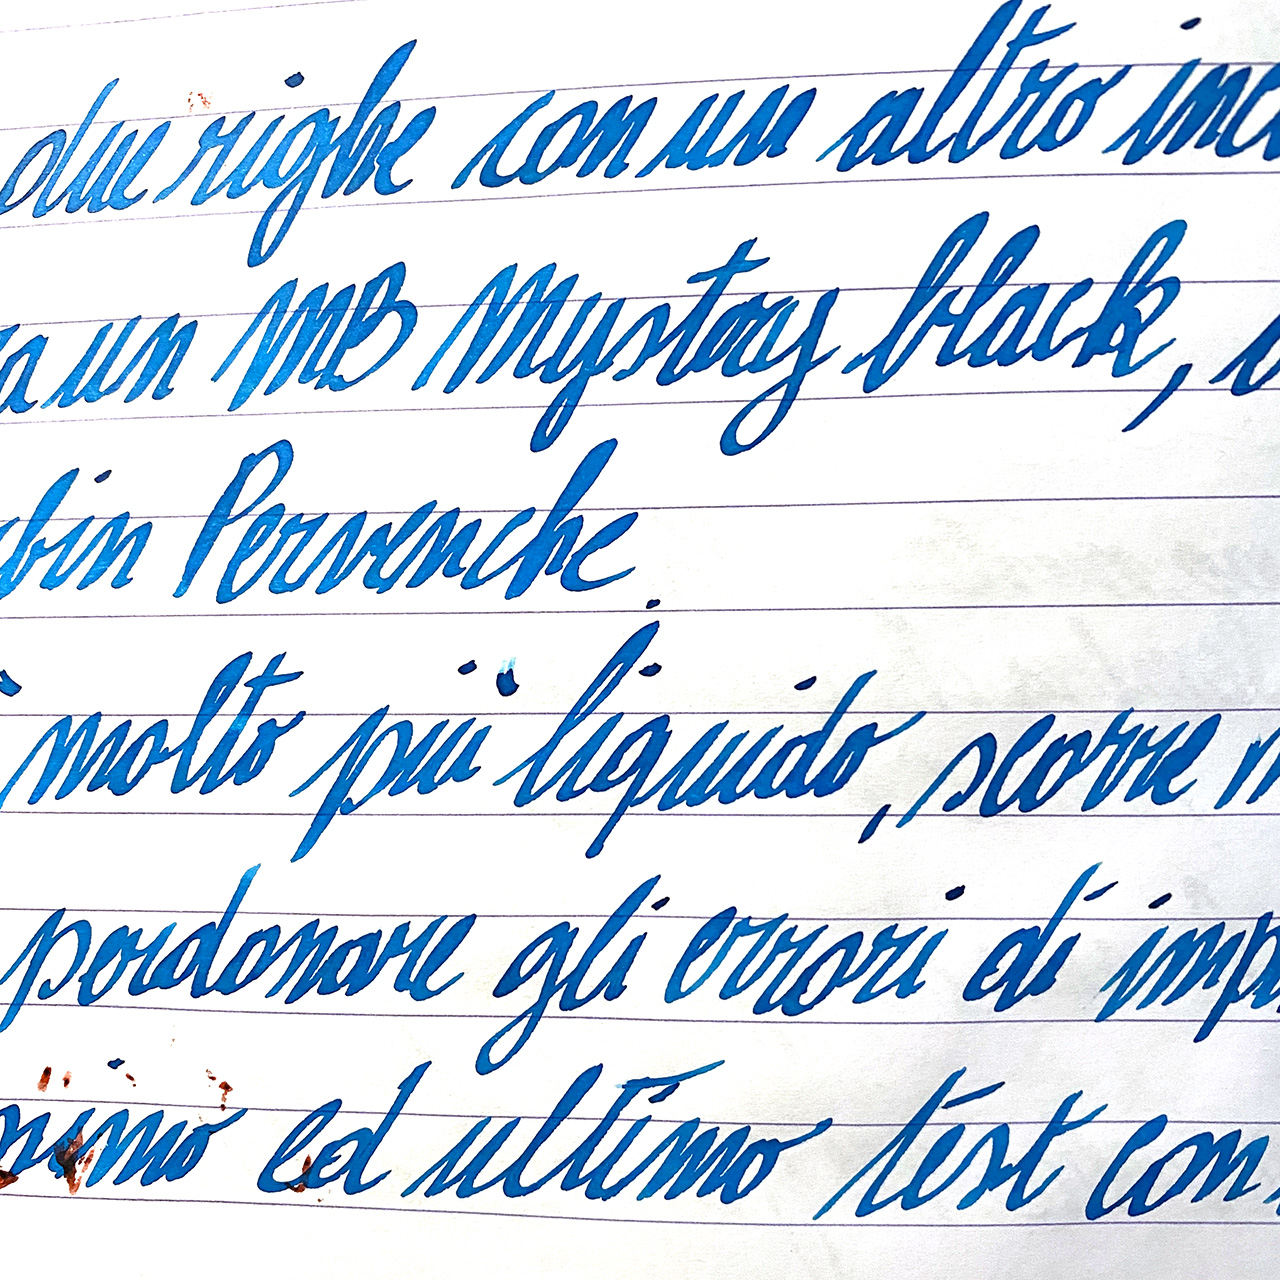 due righe con un altro inc
a un MB Mystery black,
bin Pervenche
molto più liquido, scorre
perdonare gli errori di imp
nimo ed ultimo test con